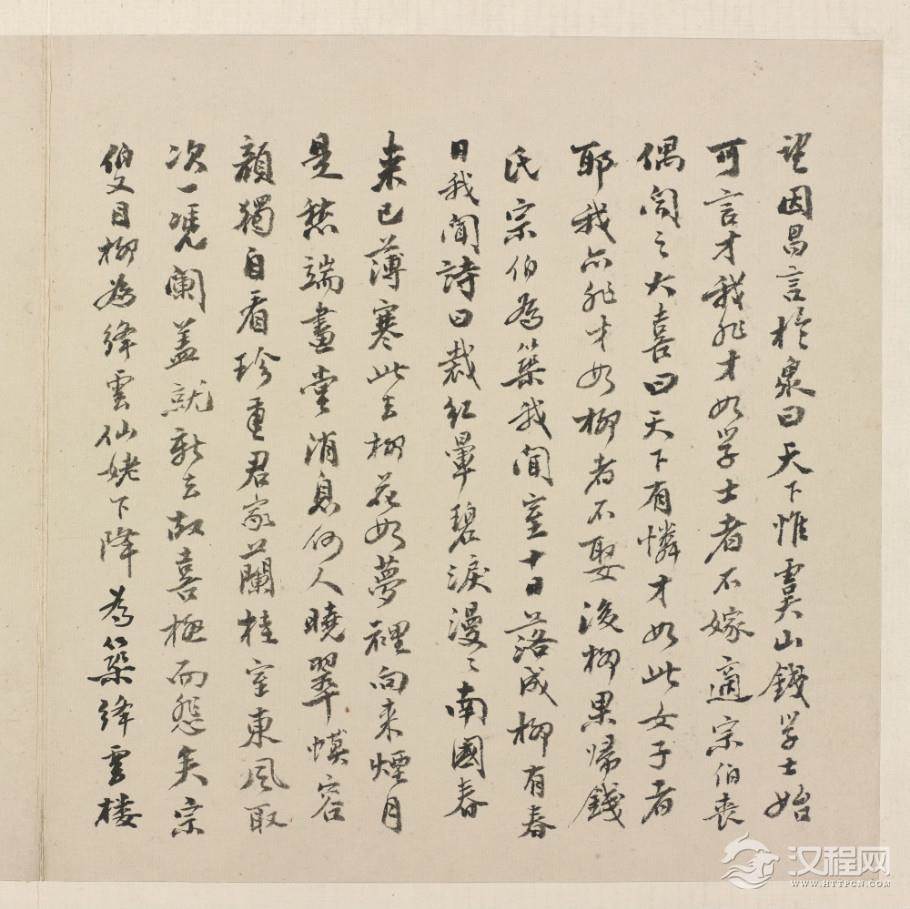 望因昌言於衆曰天下惟虞山錢学士始
可言才我非才如学士者不嫁適宗伯喪
偶聞之大喜曰天下有憐才如此女子者
耶我亦非才如柳者不娶後柳果帰錢
氏宗伯為築我聞室十日落成柳有春
日我聞詩曰裁紅暈碧淚漫〻南國春
来已薄寒此去柳花如夢裡向来煙月
是愁端畫堂消息何人曉翠幙容
顏獨自看珍重君家蘭桂室東風取
次一凭闌盖就新去故喜極而怨矣宗
伯又目柳為絳雲仙姥下降為築絳雲樓
汉程网
WWW.HTTPCN.COM